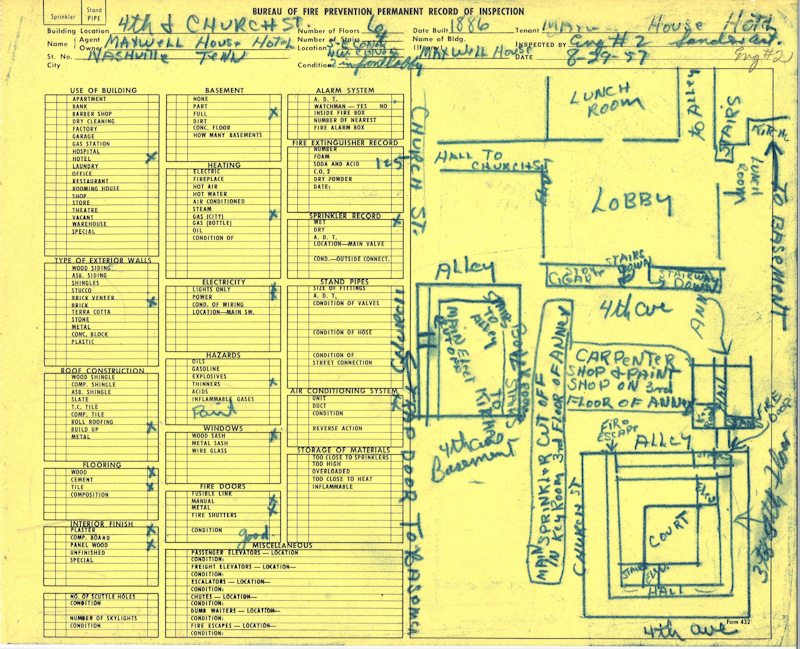 BUREAU OF FIRE PREVENTION PERMANENT RECORD OF INSPECTION
Sprinkler
Stand PIPE
Building Location 4th & CHURCH ST. Number of Floors 6 Date Built 1886 Tenant Maxwell House Hotel
Name { Agent Owner MAXWELL HOUSE HOTEL Number of Stairs Location Name of Bldg. (If any) MAXWELL HOUSE INSPECTED BY Eng # 2
St. No. NASHVILLE TENN DATE 8-29-57 Eng #2
City Condition 2 in front lobby
USE OF BUILDING
APARTMENT
BANK
BARBER SHOP
DRY CLEANING
FACTORY
GARAGE
GAS STATION
HOSPITAL
HOTEL X
LAUNDRY
OFFICE
RESTAURANT
ROOMING HOUSE
SHOP
STORE
THEATRE
VACANT
WAREHOUSE
SPECIAL
TYPE OF EXTERIOR WALLS
WOOD SIDING
ASB. SIDING
SHINGLES
STUCCO
BRICK VENEER
BRICK X
TERRA COTTA
STONE
METAL
CONC. BLOCK
PLASTIC
ROOF CONSTRUCTION
WOOD SHINGLE
COMP. SHINGLE
ASB. SHINGLE
SLATE
T.C. TILE
COMP. TILE
ROLL ROOFING
BUILD UP X
METAL
FLOORING
WOOD X
CEMENT
TILE X
COMPOSITION
INTERIOR FINISH
PLASTER X
COMP. BOARD
PANEL WOOD X
UNFINISHED
SPECIAL
NO. OF SCUTTLE HOLES
CONDITION
NUMBER OF SKYLIGHTS
CONDITION
BASEMENT
NONE
PART
FULL X
DIRT
CONC. FLOOR
HOW MANY BASEMENTS
HEATING
ELECTRIC
FIREPLACE
HOT AIR
HOT WATER
AIR CONDITIONED
STEAM
GAS (CITY) X
GAS (BOTTLE)
OIL
CONDITION OF
ELECTRICITY
LIGHTS ONLY X
POWER X
COND. OF WIRING
LOCATION—MAIN SW.
HAZARDS
OILS
GASOLINE
EXPLOSIVES
THINNERS X
ACIDS
INFLAMMABLE GASES
Paint
WINDOWS
WOOD SASH X
METAL SASH
WIRE GLASS
FIRE DOORS
FUSIBLE LINK
MANUAL X
METAL X
FIRE SHUTTERS
CONDITION good
MISCELLANEOUS
PASSENGER ELEVATORS – LOCATION
CONDITION:
FREIGHT ELEVATORS – LOCATION—
CONDITION:
ESCALATORS – LOCATION—
CONDITION:
CHUTES – LOCATION—
CONDITION:
DUMB WAITERS – LOCATION—
CONDITION:
FIRE ESCAPES – LOCATION—
CONDITION:
ALARM SYSTEM
A. D. T.
WATCHMAN – YES NO
INSIDE FIRE BOX
NUMBER OF NEAREST
FIRE ALARM BOX
FIRE EXTINGUISHER RECORD
NUMBER
FOAM
SODA AND ACID 125
C.O. 2
DRY POWDER
DATE:
SPRINKLER RECORD
WET X
DRY
A. D. T.
LOCATION—MAIN VALVE
COND.—OUTSIDE CONNECT.
STAND PIPES
SIZE OF FITTINGS
A. D. T.
CONDITION OF VALVES
CONDITION OF HOSE
CONDITION OF
STREET CONNECTION
AIR CONDITIONING SYSTEM
UNIT X
DUCT
CONDITION
REVERSE ACTION
STORAGE OF MATERIALS
TOO CLOSE TO SPRINKLERS
TOO HIGH
OVERLOADED
TOO CLOSE TO HEAT
INFLAMMABLE
CHURCH ST.
TRAP DOOR TO
LUNCH ROOM
to Alley
STAIRS
LUNCH ROOM
TO BASEMENT
HALL TO CHURCH ST
LOBBY
CIGAR
STAIRS DOWN
STAIRWAY DOWN
4th ave
Alley
STAIRS TO Alley
MAIN ELECT
4th ave
Basement
MAIN SPRINKLER CUT OFF
IN KEY ROOM 3rd FLOOR OF ANNEX
CARPENTER
SHOP & PAINT
SHOP ON 3rd
FLOOR OF ANNEX
HALL
FIRE DOOR
FIRE ESCAPE
ALLEY
CHURCH ST
ELEV
COURT
STAIRS
ELEV.
HALL
4th ave
Form 432